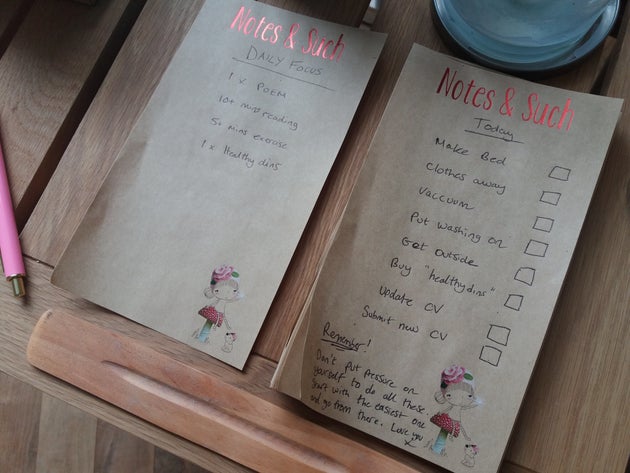 Notes & Such
DAILY FOCUS
1 x POEM
10+ mins reading
5+ mins exercise
1 x Healthy dins
Notes & Such
Today
Make Bed
Clothes away
Vaccuum
Put washing on
Get outside
Buy "healthy dins"
Update CV
Submit new CV
Remember!
Don't put pressure on
yourself to do all these.
Start with the easiest one
and go from there. Love you
x